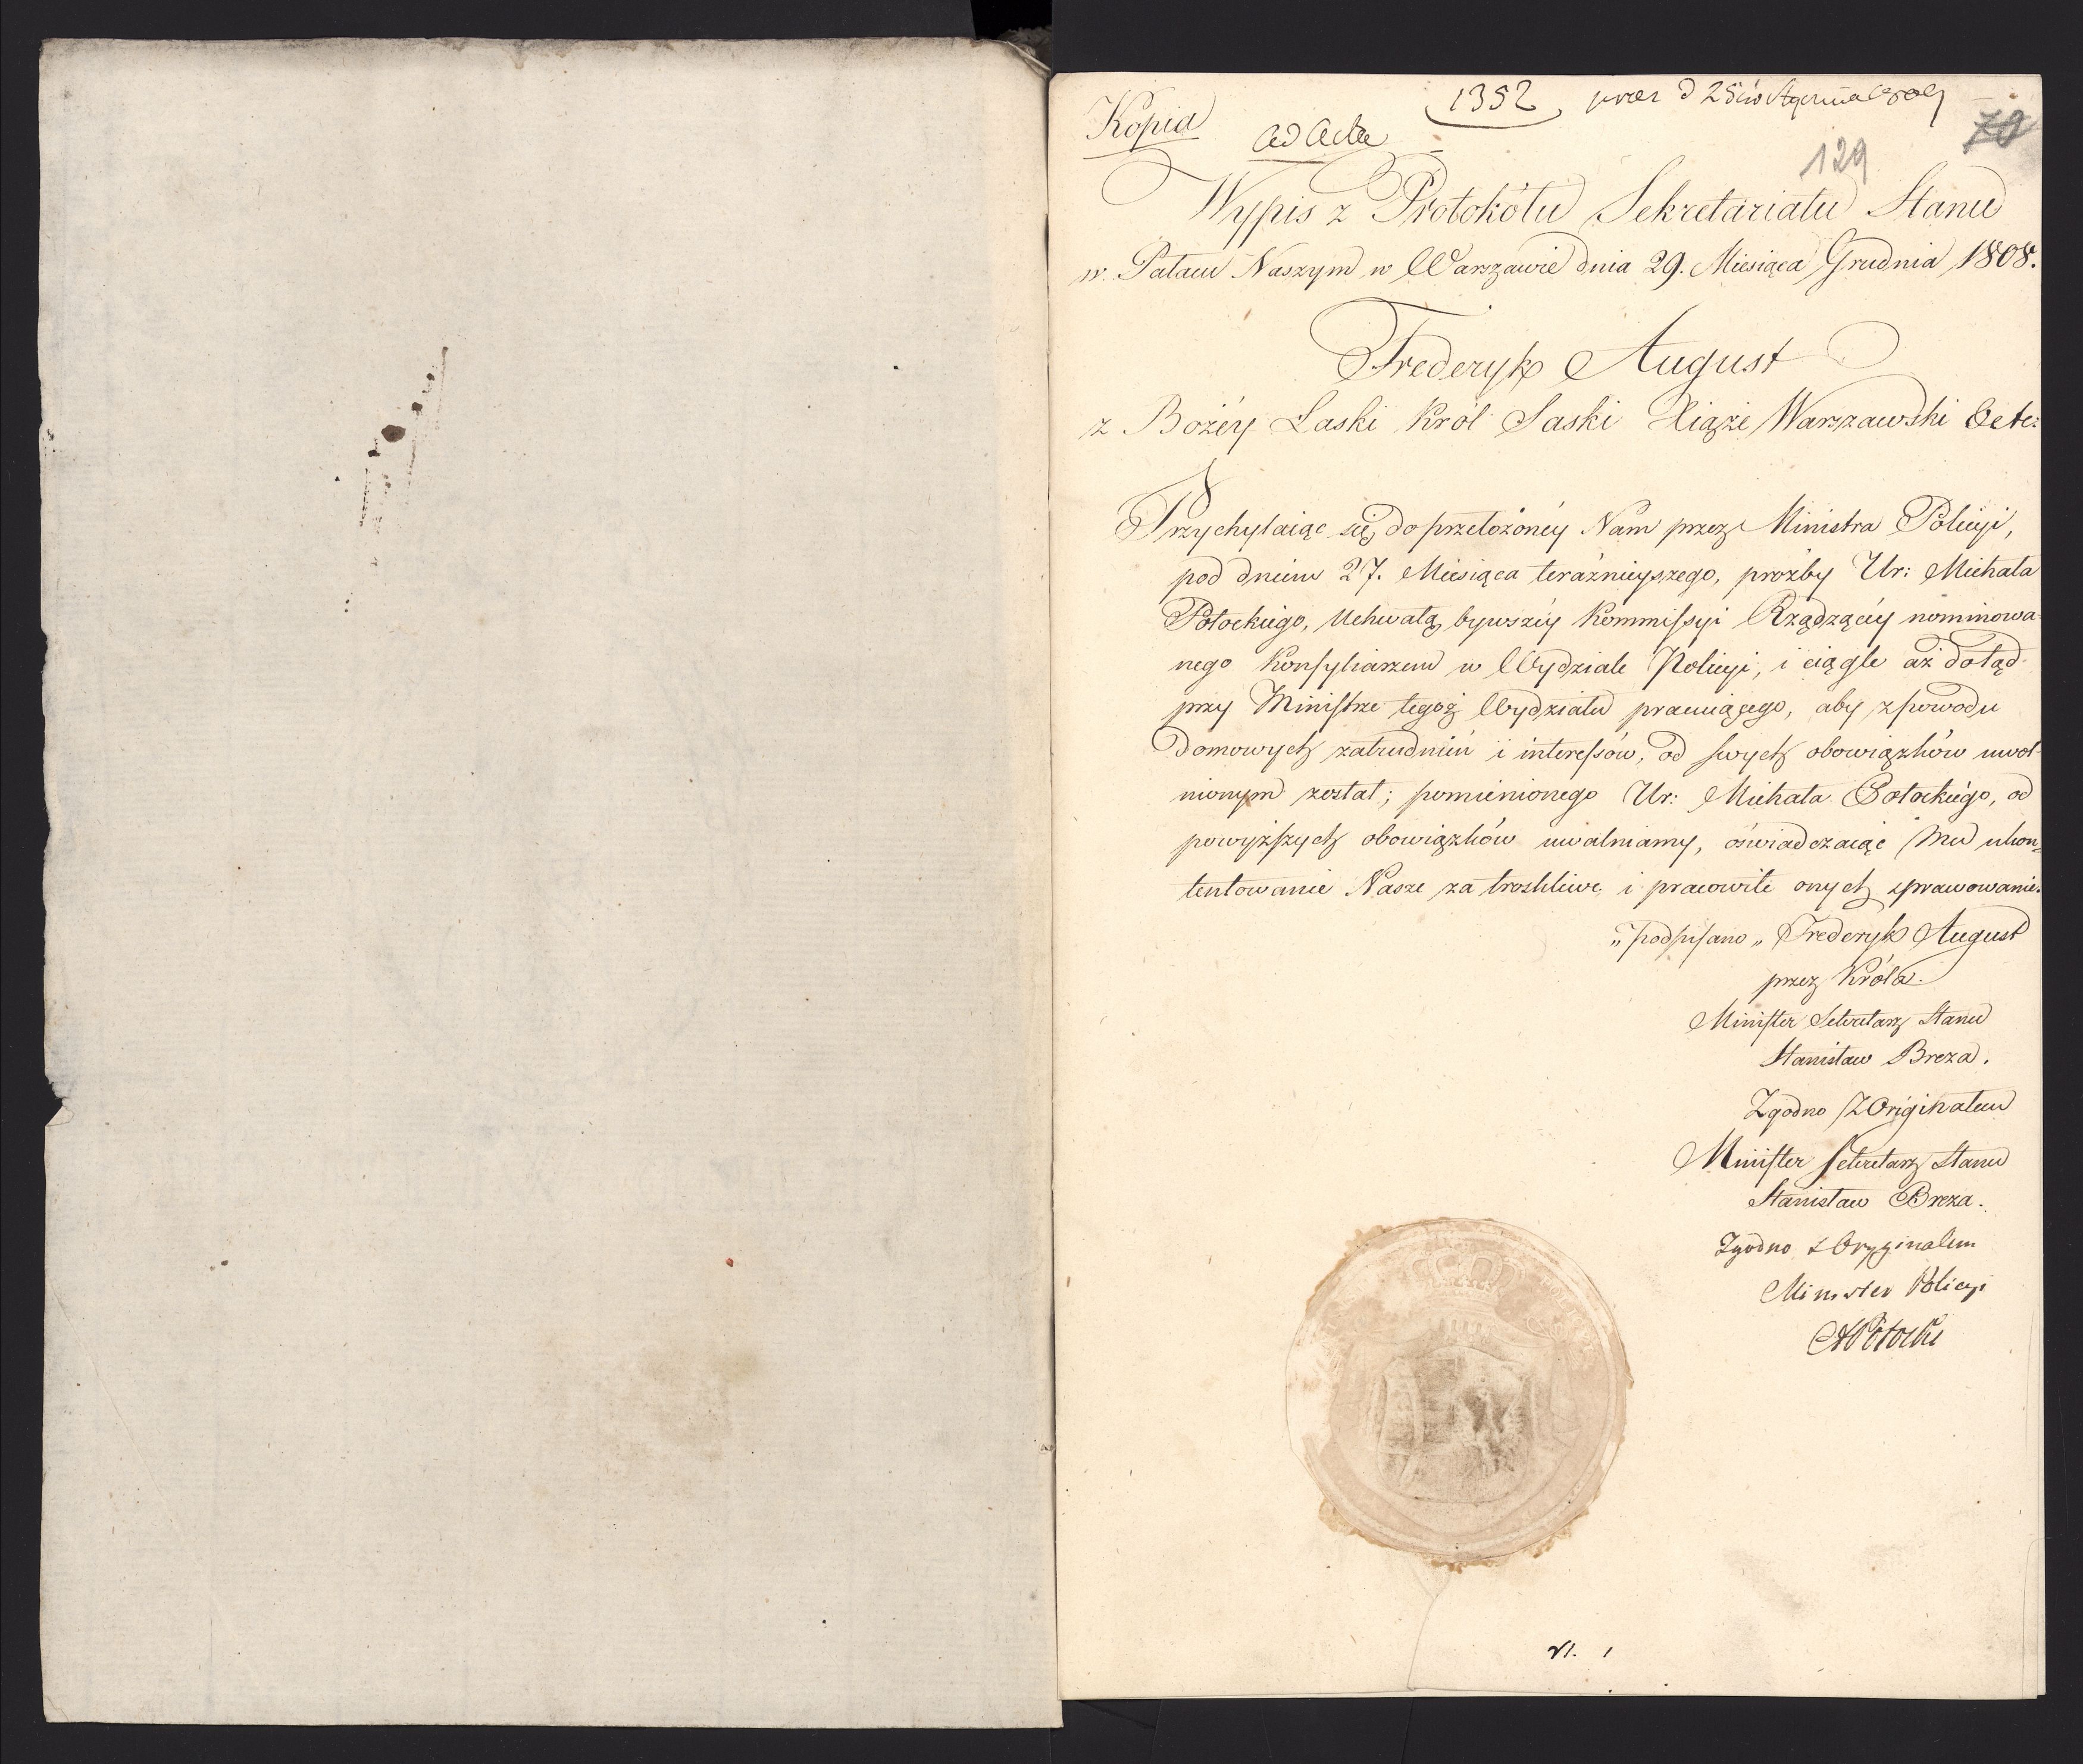 1352 praes d 25 stycznia 1809
Kopia
70
ad acta
129
Wypis z Protokółu Sekretariatu Stanu
w Pałacu Naszym w Warszawie dnia 29. Miesiąca Grudnia 1808.
Frederyk August
z Bożéy Łaski Król Saski Xiąże Warszawski &ete:
Przychylaiąc się do przełożonéy Nam przez Ministra Policyi,
pod dniem 27. Miesiąca teraźnieyszego, proźby Ur: Michała
Potockiégo, Uchwałą bywszéy Kommissyi Rządzącéy nominowa-
nego Konsyliarzem w Wydziale Policyi, i ciągle aż dotąd
przy Ministrze tegoż Wydziału pracuiącego, aby z powodu
domowych zatrudnień i interessów, od swych obowiązków uwol-
nionym został; pomienionego Ur: Michała Potockiégo, od
powyższych obowiązków uwalniamy, oświadczaiąc Mu ukon=
tentowanie Nasze za troskliwe i pracowite onych sprawowanie.
„podpisano„ Frederyk August
przez Króla.
Minister Sekretarz Stanu
Stanisław Breza.
Zgodno z Originałem
Minister Sekretarz Stanu
Stanisław Breza.
Zgodno z Oryginałem
Minister Policyi
APotocki